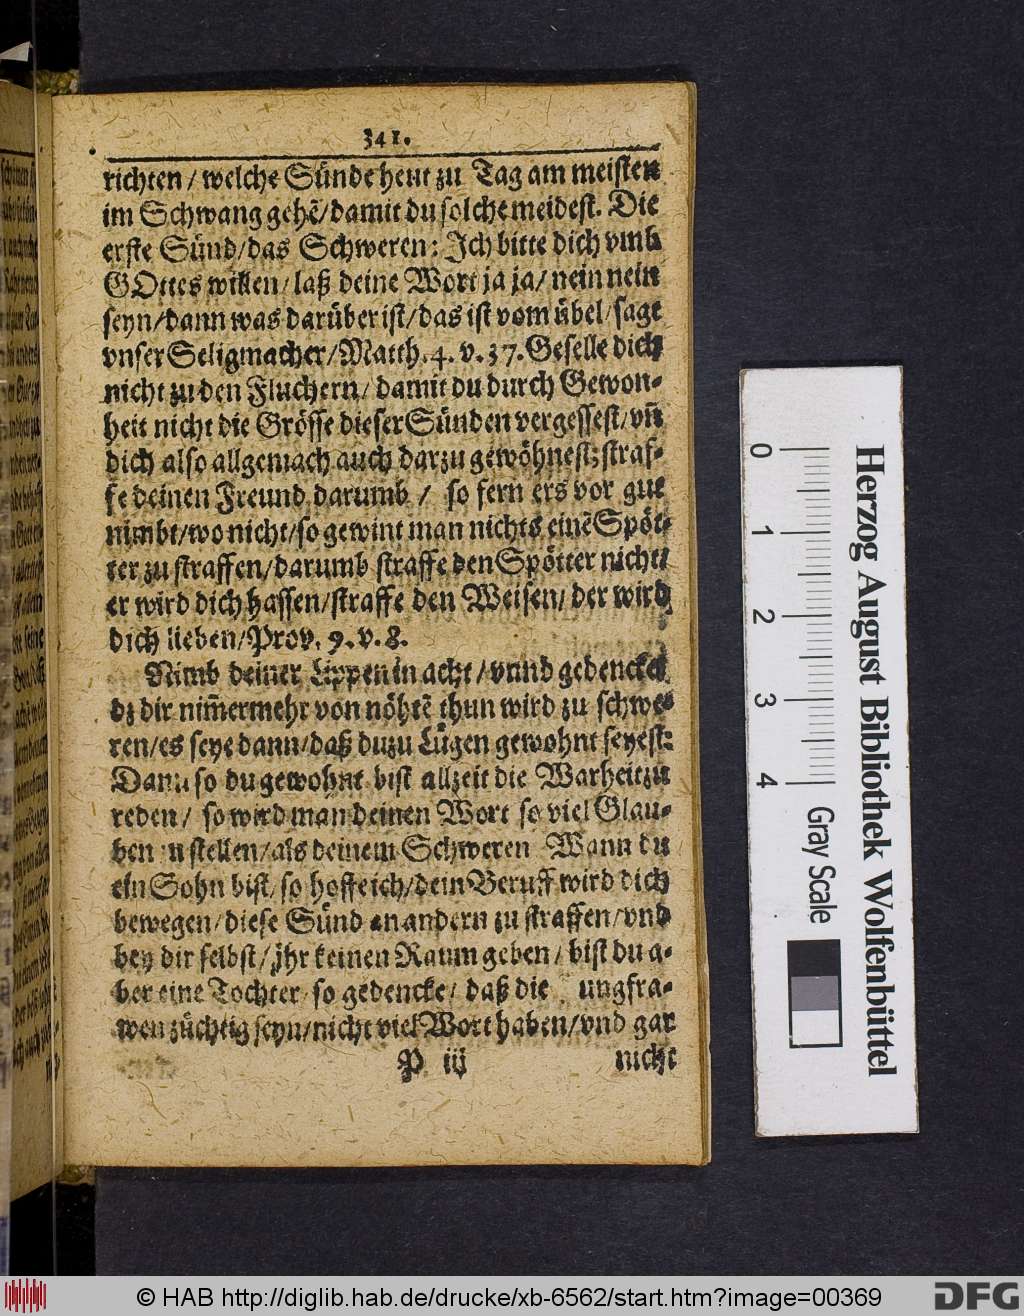 341.
richten / welche Sünde heut zu Tag am meisten
im Schwang gehẽ/damit du solche meidest. Die
erste Sünd/das Schweren: Ich bitte dich vmb
GOttes willen/ laß deine Wort ja ja/ nein nein
seyn/dann was darüber ist/das ist vom übel/sagt
vnser Seligmacher/Matth. 4. v. 37. Geselle dich
nicht zu den Fluchern/ damit du durch Gewon-
heit nicht die Grösse dieser Sünden vergessest/vñ
dich also allgemach auch darzu gewöhnest; straf-
fe deinen Freund darumb / so fern ers vor gut
nimbt/wo nicht/so gewint man nichts einẽ Spöt-
ter zu straffen/darumb straffe den Spötter nicht/
er wird dich hassen/straffe den Weisen/ der wird
dich lieben/Prov. 9. v. 8.
Nimb deiner Lippen in acht / vnnd gedencke
dz dir nim̃ermehr von nöhtẽ thun wird zu schwe-
ren/es seye dann/daß du zu Lügen gewohnt seyest:
Dann so du gewohnt bist allzeit die Warheit zu
reden/ so wird man deinen Wort so viel Glau-
ben stellen/als deinem Schweren Wann du
ein Sohn bist/ so hoffe ich/dein Beruff wird dich
bewegen/diese Sünd an andern zu straffen/vnd
bey dir selbst/ jhr keinen Raum geben/ bist du a-
ber eine Tochter/ so gedencke/ daß die ungfra-
wen züchtig seyn/nicht viel Wort haben/vnd gar
P iij nicht
Herzog August Bibliothek Wolfenbüttel
0 1 2 3 4
Gray Scale
© HAB http://diglib.hab.de/drucke/xb-6562/start.htm?image=00369
DFG